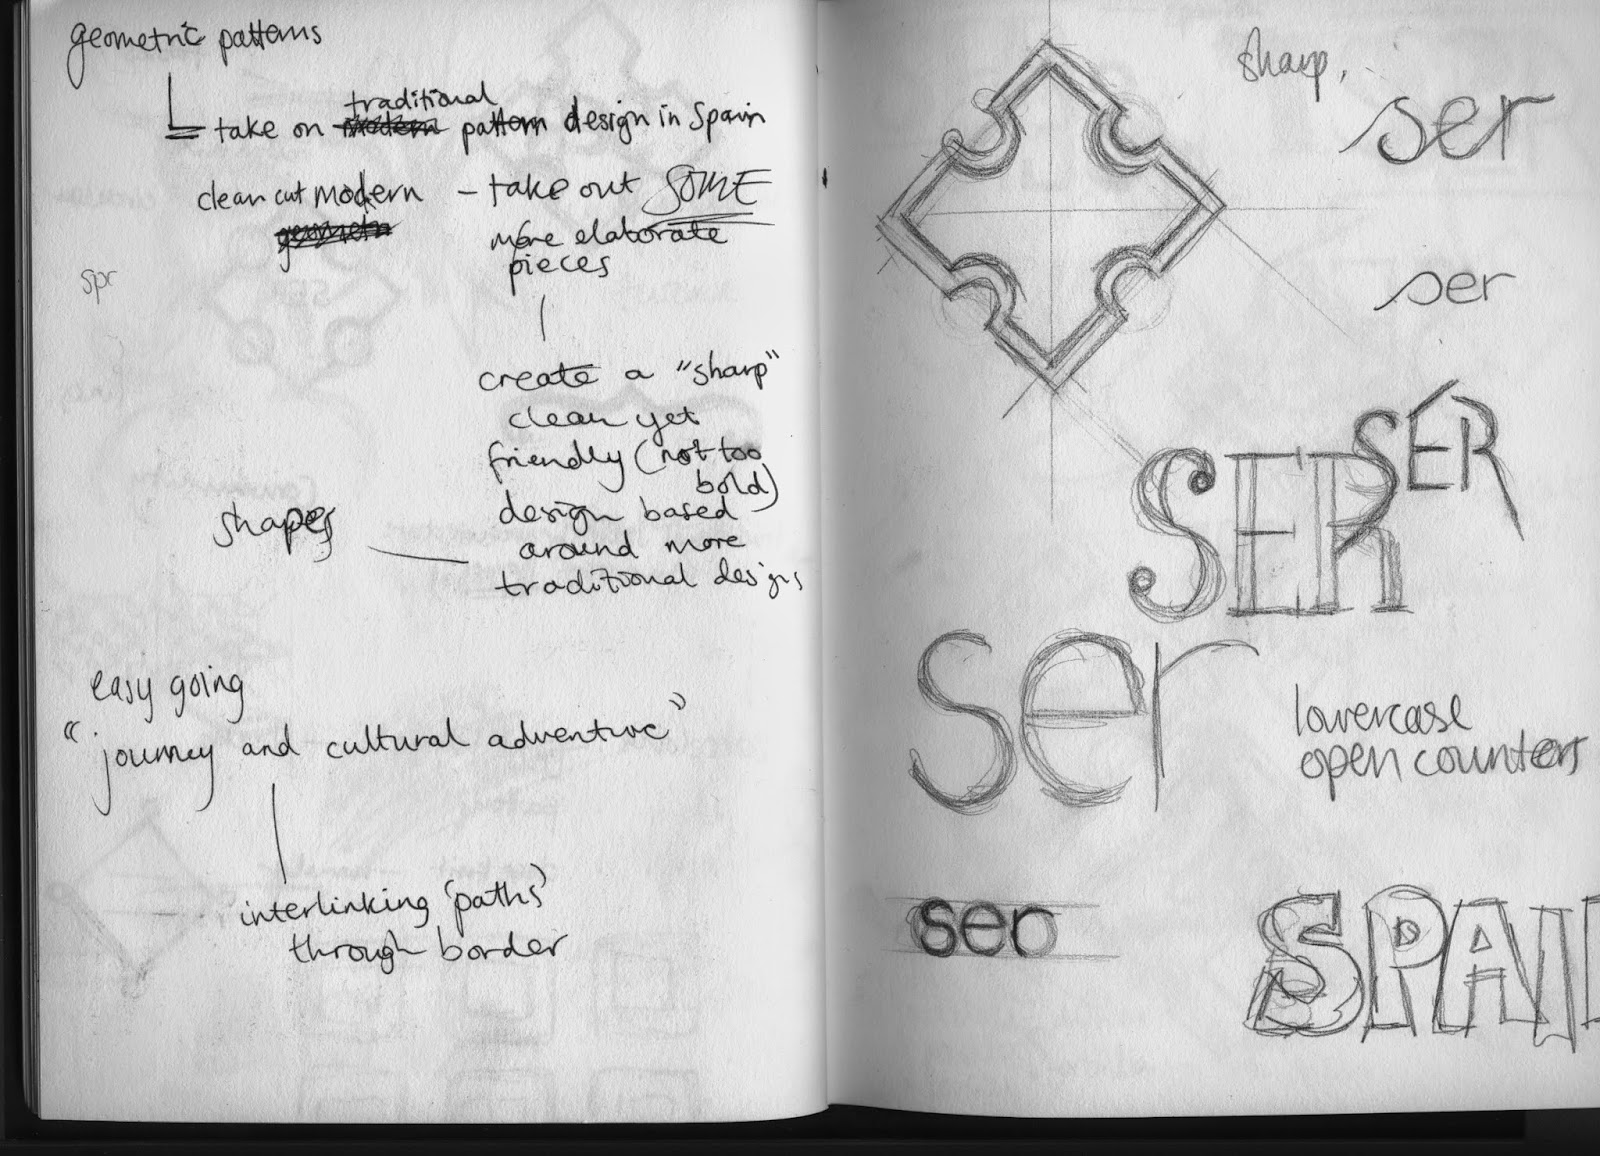 geometric patterns
traditional
take on modern pattern design in Spain
clean cut modern
geometri
- take out SOME
more elaborate
pieces
spr
create a "sharp"
clean yet
friendly (not too
bold)
design based
around more
traditional designs
shapes
easy going
"journey and cultural adventure"
interlinking 'paths'
through border
sharp.
ser
ser
SER
SER
ser
lowercase
open counters
ser
SPAI